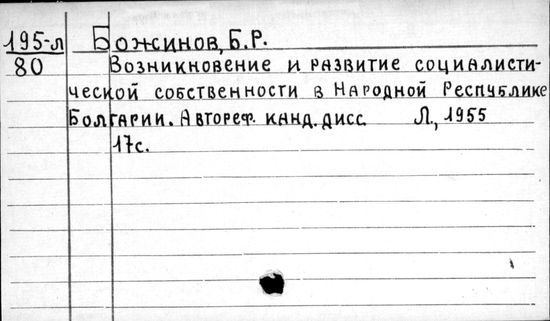 195-л Божинов, Б.Р.
80 Возникновение и развитие социалисти-
ческой собственности в Народной Республике
Болгарии. Автореф. канд. дисс. Л., 1955
17с.